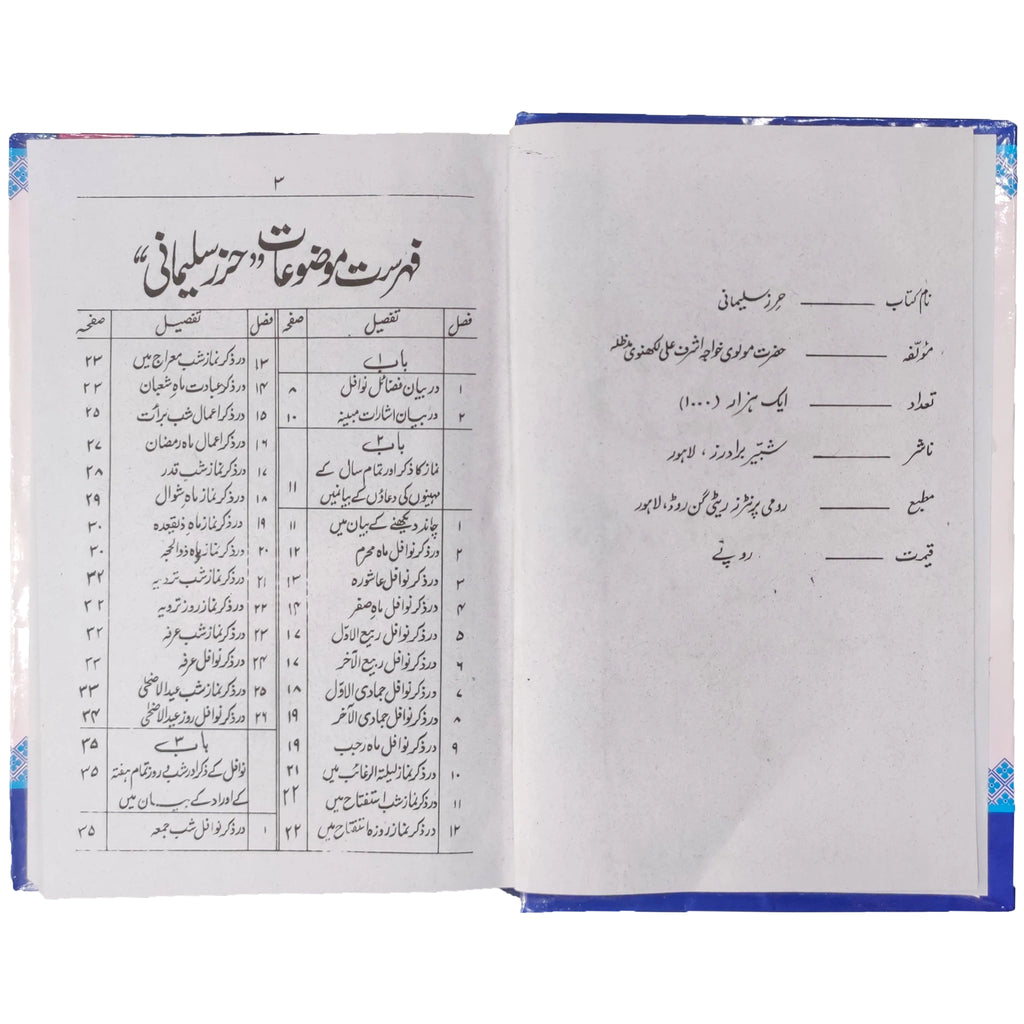 نام کتاب ——— حرز سلیمانی
مؤلفہ ——— حضرت مولوی خواجہ اشرف علی لکھنوی مدظلہ
تعداد ——— ایک ہزار (۱۰۰۰)
ناشر ——— شبیر برادرز ، لاہور
مطبع ——— رومی پرنٹرز ریٹی گن روڈ، لاہور
قیمت ——— روپے
۳
فہرست موضوعات ”حرز سلیمانی“
فصل تفصیل صفحہ
باب ۱
۱ در بیان فضائل نوافل ۸
۲ در بیان اشارات مبینہ ۱۰
باب ۲
نماز کا ذکر اور تمام سال کے
مہینوں کی دعاؤں کے بیانمیں ۱۱
۱ چاند دیکھنے کے بیان میں ۱۱
۲ در ذکر نوافل ماہ محرم ۱۲
۳ در ذکر نوافل عاشورہ ۱۳
۴ در ذکر نوافل ماہِ صفر ۱۴
۵ در ذکر نوافل ربیع الاوّل ۱۷
۶ در ذکر نوافل ربیع الآخر ۱۷
۷ در ذکر نوافل جمادی الاوّل ۱۸
۸ در ذکر نوافل جمادی الآخر ۱۹
۹ در ذکر نوافل ماہ رجب ۱۹
۱۰ در ذکر نماز لیلۃ الرغائب میں ۲۱
۱۱ در ذکر نماز شب استفتاح میں ۲۲
۱۲ در ذکر نماز روزہ استفتاح میں ۲۲
فصل تفصیل صفحہ
۱۳ در ذکر نماز شب معراج میں ۲۳
۱۴ در ذکر عبادت ماہِ شعبان ۲۳
۱۵ در ذکر اعمال شب برأت ۲۵
۱۶ در ذکر اعمال ماہ رمضان ۲۷
۱۷ در ذکر نماز شب قدر ۲۸
۱۸ در ذکر نماز ماہِ شوال ۲۹
۱۹ در ذکر نماز ماہِ ذیقعدہ ۳۰
۲۰ در ذکر نماز ماہ ذوالحجہ ۳۰
۲۱ در ذکر نماز شب ترویہ ۳۲
۲۲ در ذکر نماز روز ترویہ ۳۲
۲۳ در ذکر نماز شب عرفہ ۳۲
۲۴ در ذکر نوافل عرفہ ۳۳
۲۵ در ذکر نماز شب عید الاضحٰی ۳۳
۲۶ در ذکر نوافل روز عید الاضحٰی ۳۴
باب ۳ ۳۵
نوافل کے ذکر اور شب و روز تمام ہفتہ ۳۵
کے اوراد کے بیان میں
۱ در ذکر نوافل شب جمعہ ۳۵